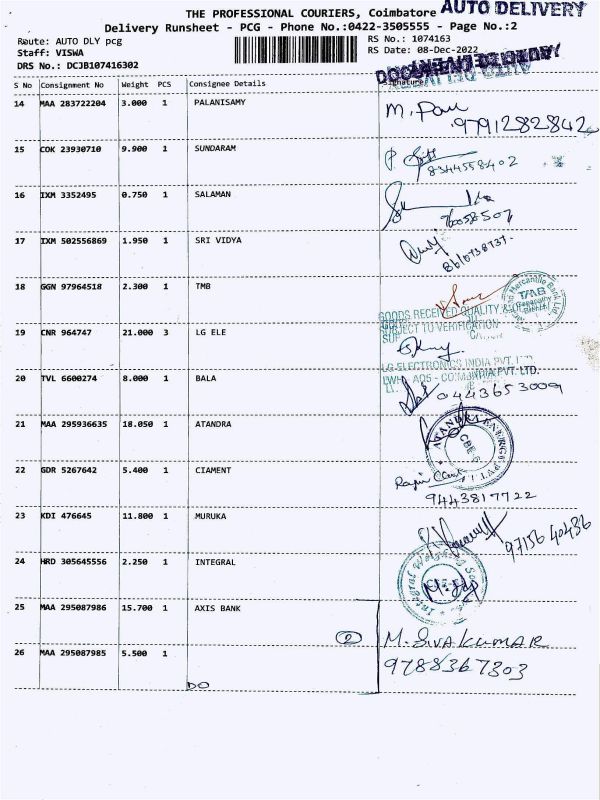 THE PROFESSIONAL COURIERS, Coimbatore AUTO DELIVERY
Delivery Runsheet - PCG - Phone No.:0422-3505555 - Page No.:2
Route: AUTO DLY pcg RS No.: 1074163
Staff: VISWA RS Date: 08-Dec-2022
DRS No.: DCJB107416302
S No Consignment No Weight PCS Consignee Details Signature
14 MAA 283722204 3.000 1 PALANISAMY
9791282842
15 COK 23930710 9.900 1 SUNDARAM
8344558402
16 IXM 3352495 0.750 1 SALAMAN
17 IXM 502556869 1.950 1 SRI VIDYA
18 GGN 97964518 2.300 1 TMB
GOODS RECEIVED QUALITY &
SUBJECT TO VERIFICATION
19 CNR 964747 21.000 3 LG ELE
LG ELECTRONICS INDIA PVT. LTD.
20 TVL 6600274 8.000 1 BALA
0443653009
21 MAA 295936635 18.050 1 ATANDRA
22 GDR 5267642 5.400 1 CIAMENT
9443817722
23 KDI 476645 11.800 1 MURUKA
9715640436
24 HRD 305645556 2.250 1 INTEGRAL
25 MAA 295087986 15.700 1 AXIS BANK
2 M. SIVAKUMAR
26 MAA 295087985 5.500 1 9788367303
DO